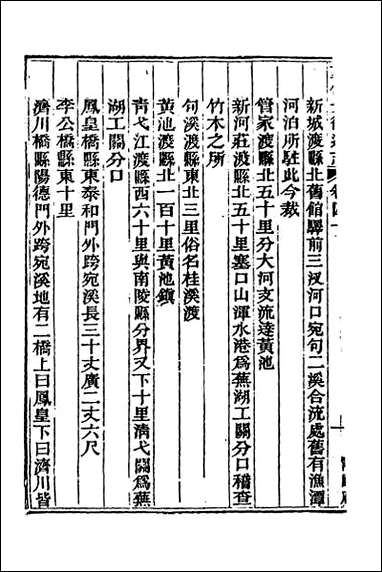 新城渡縣北舊館驛前三汊河口宛句二溪合流處舊有漁潭
河泊所駐此今裁
管家渡縣北五十里分大河支流達黃池
新河莊渡縣北五十里塞口山渾水港爲蕪湖工關分口稽查
竹木之所
句溪渡縣東北三里俗名桂溪渡
黃池渡縣北一百十里黃池鎮
青弋江渡縣西六十里與南陵縣分界又下十里清弋關爲蕪
湖工關分口
鳳皇橋縣東泰和門外跨宛溪長三十丈廣二丈六尺
李公橋縣東十里
濟川橋縣陽德門外跨宛溪地有二橋上曰鳳皇下曰濟川皆